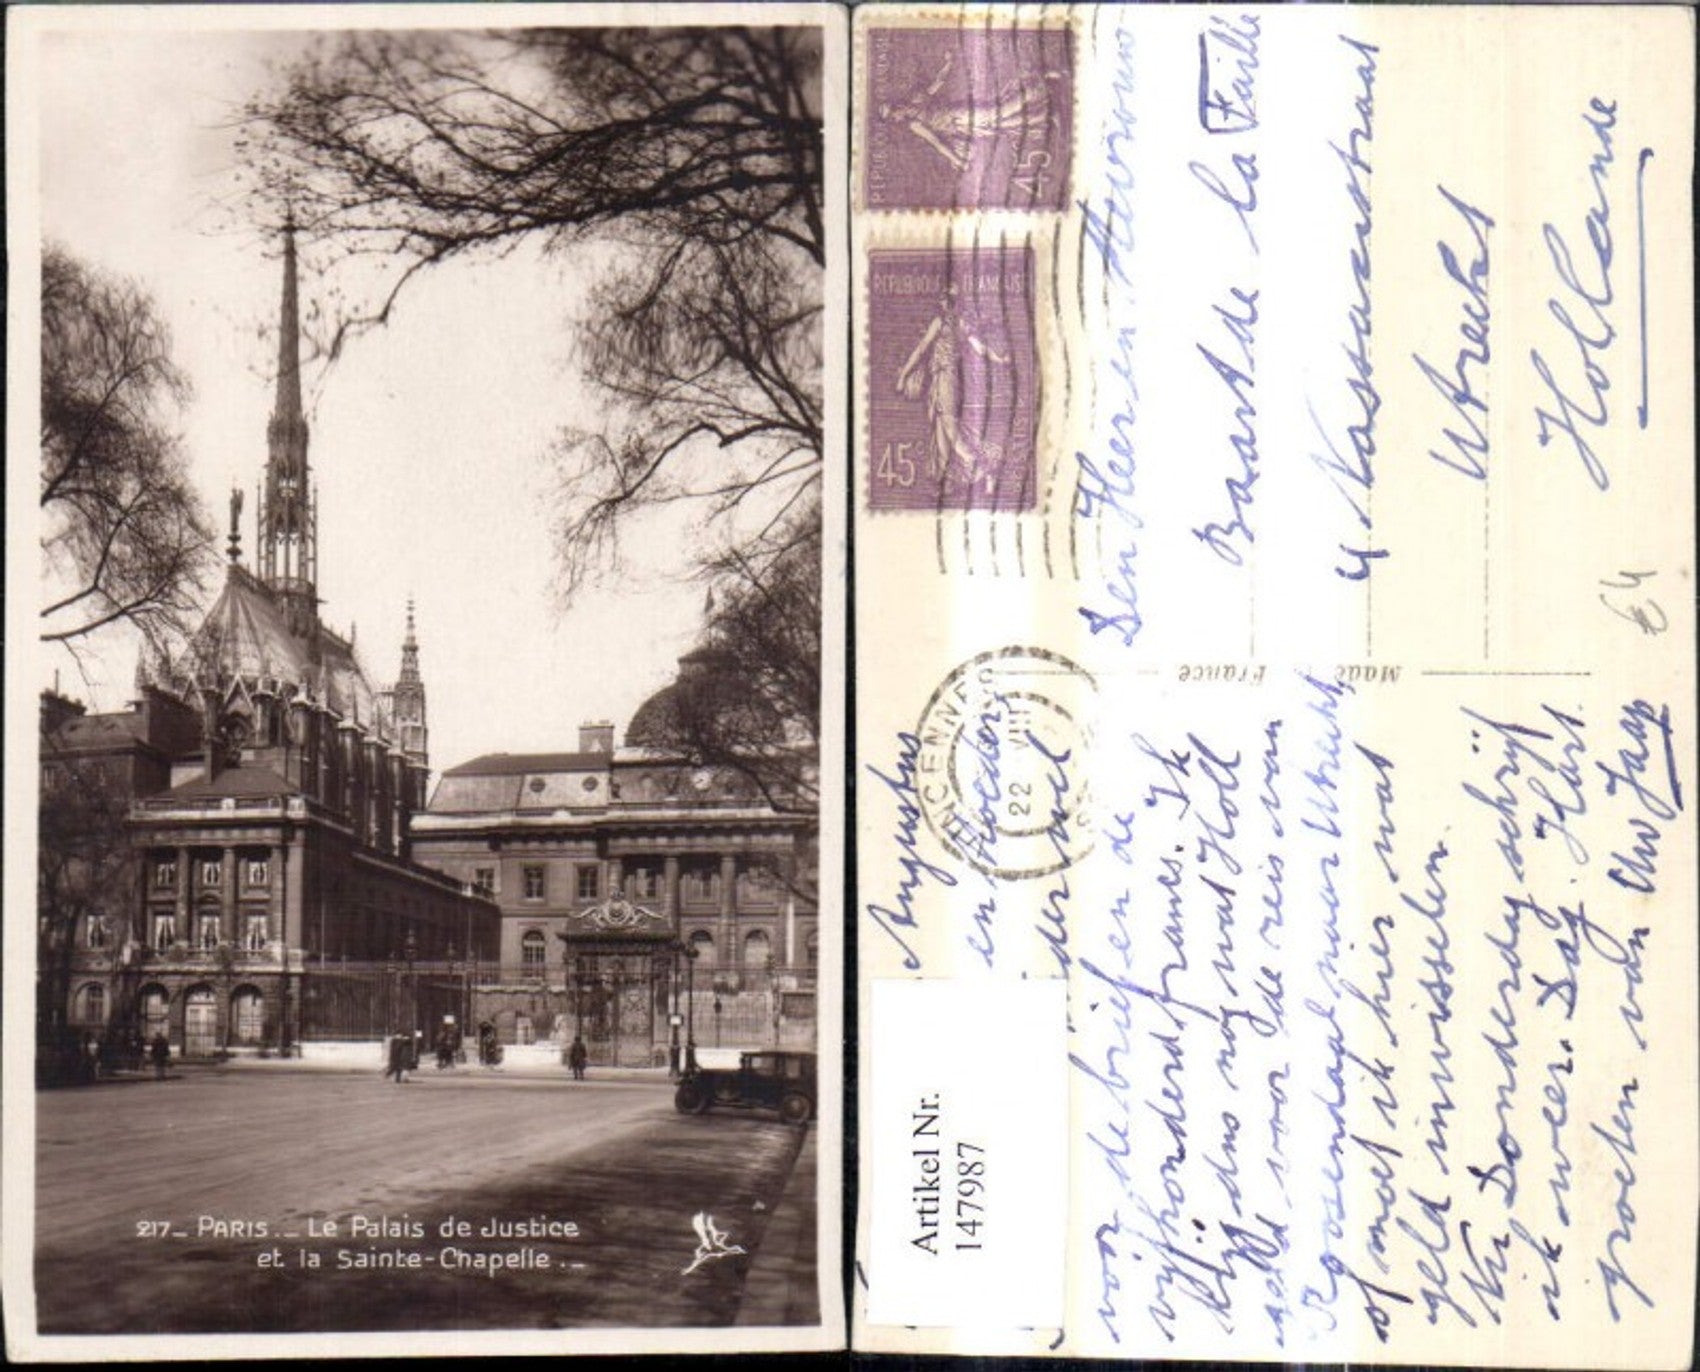 217_ PARIS._ Le Palais de Justice
et la Sainte-Chapelle._
REPUBLIQUE FRANÇAISE
45
REPUBLIQUE FRANÇAISE
45c
VINCENNES
22 VIII
Den Heer en Mevrouw
Baart de la Faille
4 Nassaustraat
Utrecht
Hollande
Made France
€4
Augustus
en Moeder,
der wel
voor de brief en de
vijfhonderd francs. Ik
krijg dus nog wat Holl
geld voor de reis van
Roosendaal naar Utrecht,
of moet ik hier wat
geld inwisselen.
Nu Donderdag schrijf
ik weer. Dag. Hart.
groeten van Uw Jaap
Artikel Nr.
147987